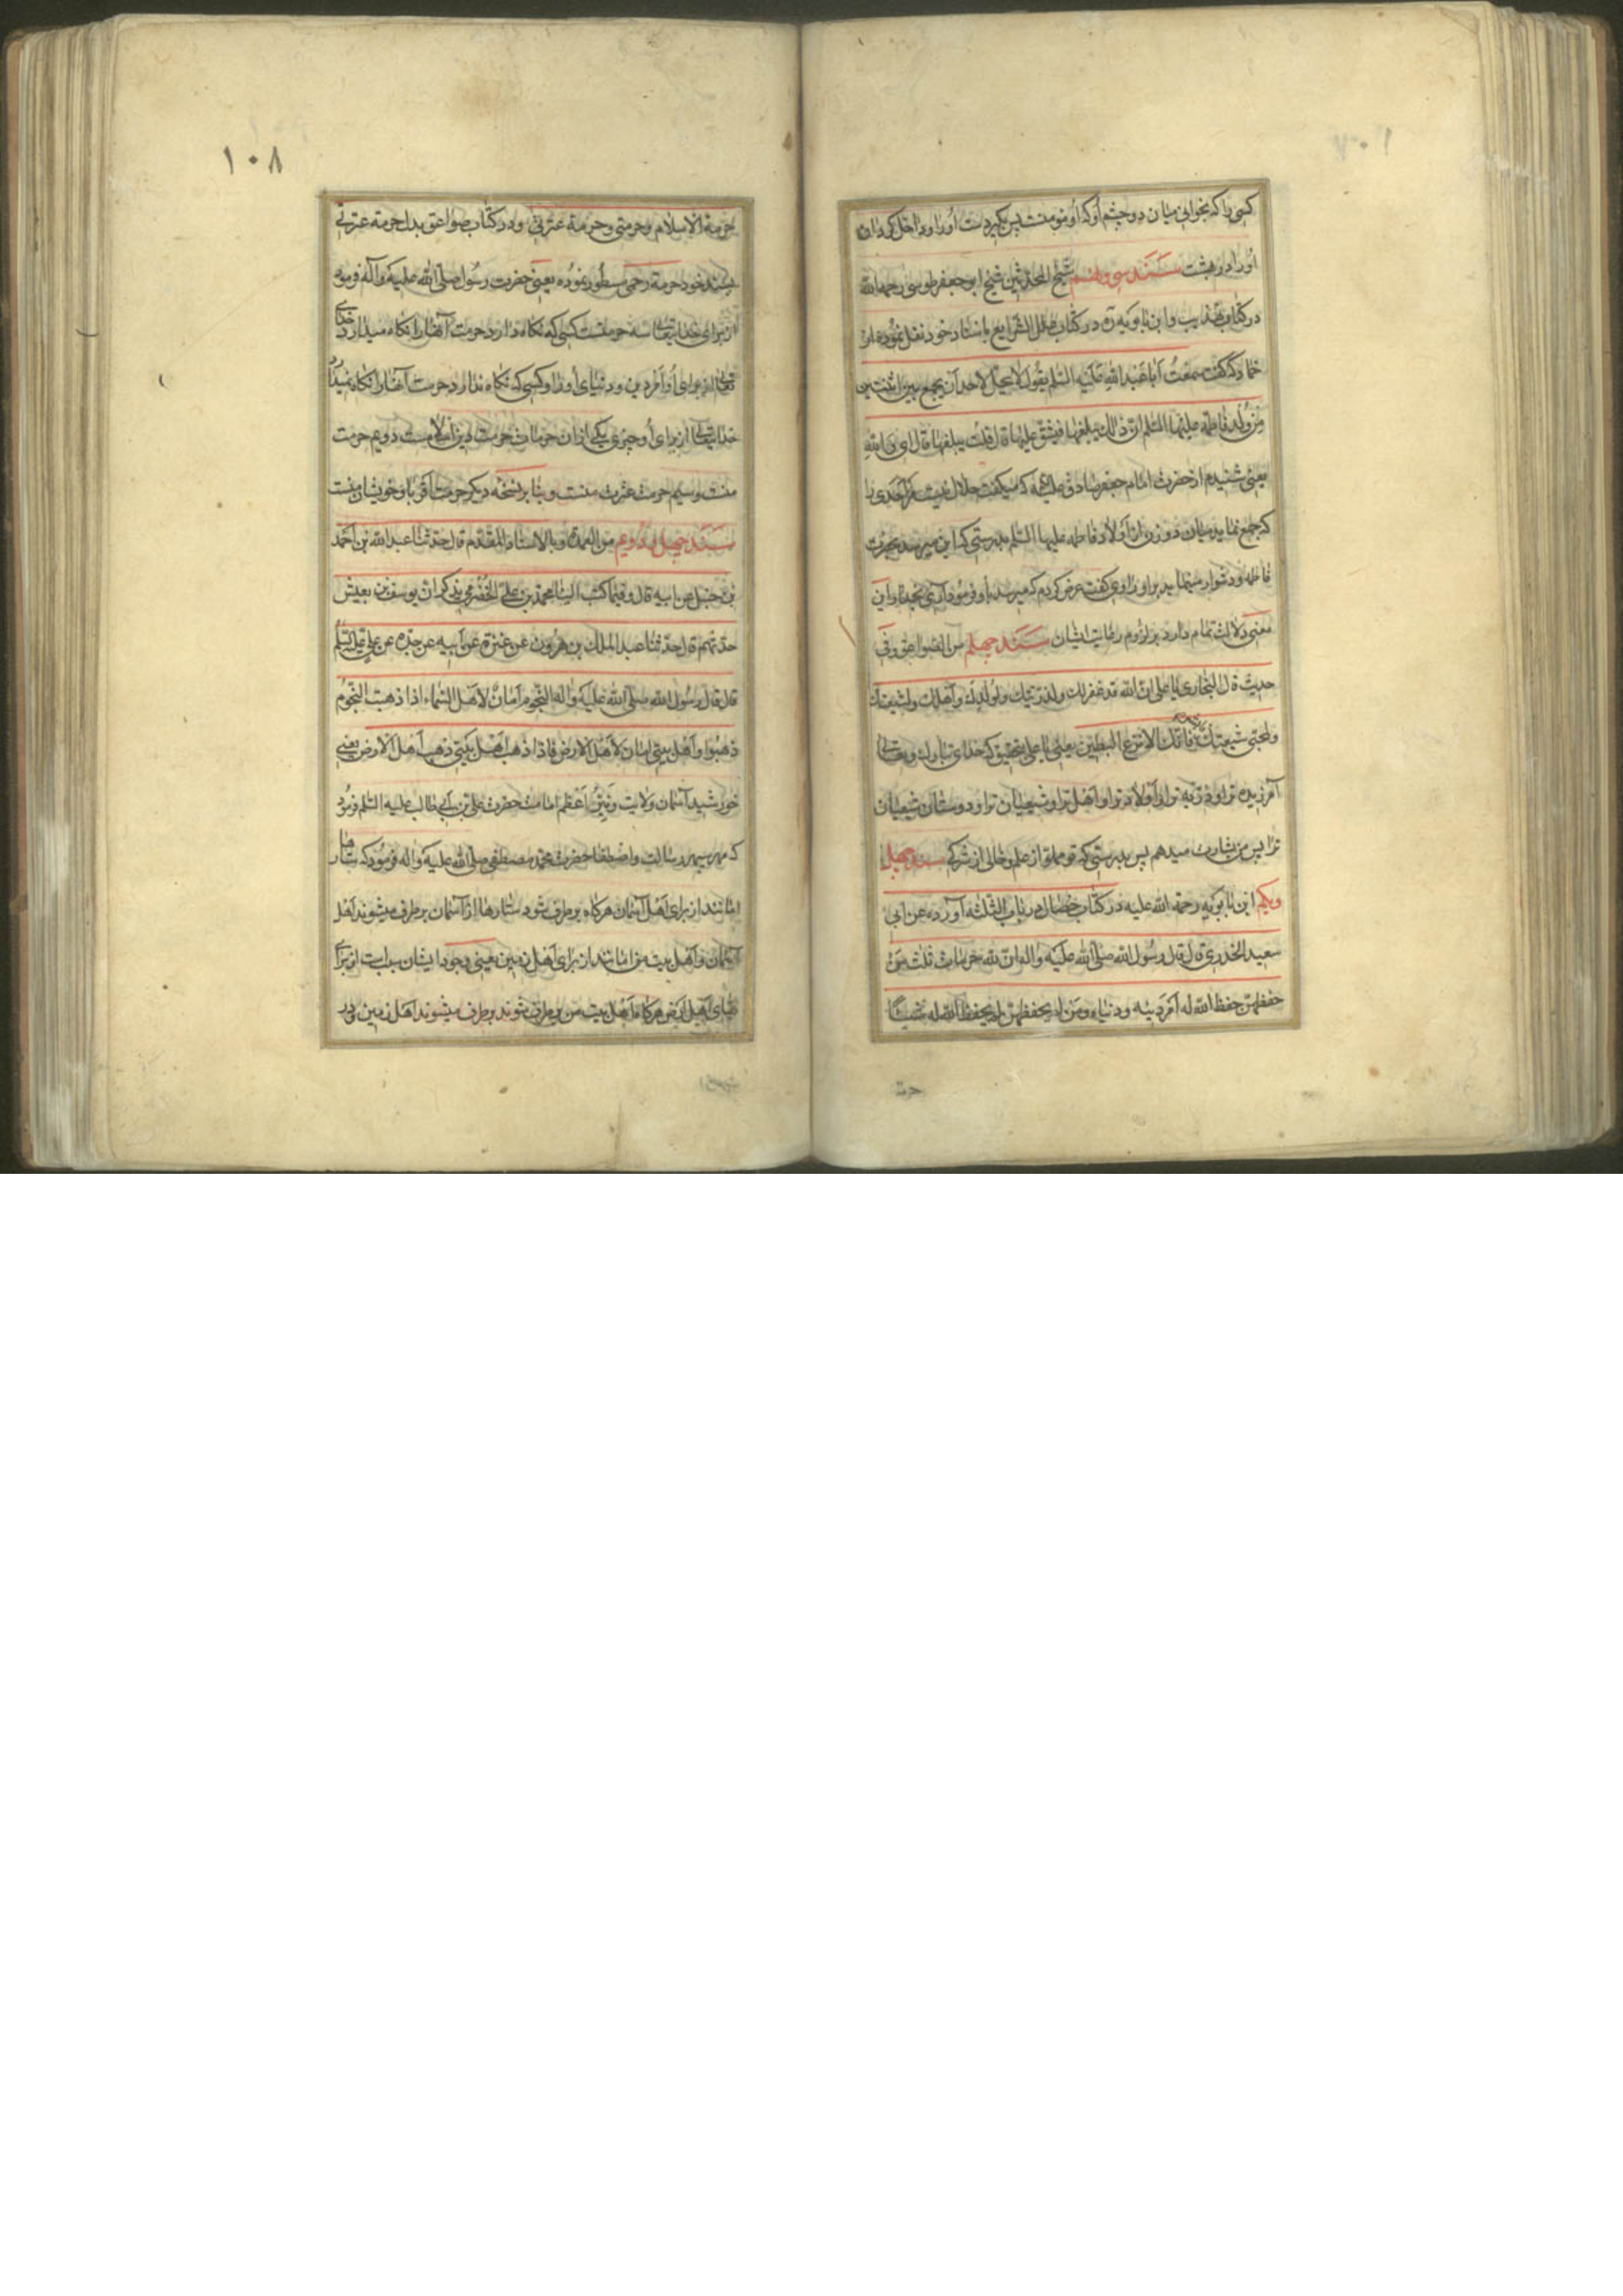 کسی را که بخوانی میان دو چشم او که او مومنست پس بگیر دست او را و داخل کردان
او را در بهشت سند سی و نهم شیخ المحدثین شیخ ابو جعفر طوسی رحمه الله
در کتاب تهذیب و ابن بابویه ره در کتاب علل الشرایع باسناد خود نقل نموده از
حماد که گفت سمعت ابا عبد الله علیه السلم یقول لا یحل لاحد ان یجمع بین اثنتین
من ولد فاطمه علیها السلم ان ذالك یبلغها فیشق علیها قال قلت یبلغها قال ای والله
یعنی شنیدم از حضرت امام جعفر صادق علیه که میکفت حلال نیست مر احدی را
که جمع نماید میان دو زن از اولاد فاطمه علیها السلم بدرستی که این میرسد بحضرت
فاطمه و دشوار مینماید بر او راوی کفت عرض کردم که میرسد باو فرمود آری بخدا و این
معنی دلالت تمام دارد بر لزوم رعایت ایشان سند چهلم من الصواعق و فی
حدیث قال البخاری یا علی ان الله قد غفر لك ولذریتك ولولدك ولاهلك ولشیعتك
ولمحبی شیعتك فانك الانزع البطین یعنی یا علی بتحقیق که خدای تبارك و تعالی
آمرزیده ترا و ذریه ترا و اولاد ترا و اهل ترا و شیعیان ترا و دوستان شیعیان
ترا پس مژده بشارت میدهم پس بدرستی که تو مملو از علم و خالی از شرکی سند چهل
و یکم ابن بابویه رحمة الله علیه در کتاب خصال در باب الثلثه آورده عن ابی
سعید الخدری قال قال رسول الله صلی الله علیه واله ان لله حرمات ثلث من
حفظهن حفظ الله له امر دینه ودنیاه ومن لم یحفظهن لم یحفظ الله له شیئا
حرمة
١٠٨
حرمة الاسلام وحرمتی وحرمة عترتی و در کتاب صواعق بدل حرمة عترتی
بسند خود حرمة رحمی مسطور نموده یعنی حضرت رسول صلی الله علیه وآله فرموده
از برای خدایتعالی سه حرمتست کسی که نگاه دارد حرمت آنها را نگاه میدارد خدای
تعالی از برای او امر دین و دنیای او را و کسی که نگاه ندارد حرمت آنها را نگاه نمیدارد
خدایتعالی از برای او چیزی یکی از آن حرمات حرمت دین اسلامست دویم حرمت
منست و سیم حرمت عترت منست و بنا بر نسخه دیگر حرمت اقربا و خویشان منست
سند چهل و دویم من العمدة وبالاسناد المقدم قال حدثنا عبد الله بن احمد
بن حنبل عن ابیه قال وفیما کتب الینا محمد بن علی الحضرمی یذکر ان یوسف بن یعیش
حدثهم قال حدثنا عبد الملك بن هرون عن عنترة عن ابیه عن جده عن علی علیه السلم
قال قال رسول الله صلی الله علیه واله النجوم امان لاهل السماء اذا ذهبت النجوم
ذهبوا واهل بیتی امان لاهل الارض فاذا ذهب اهل بیتی ذهب اهل الارض یعنی
خورشید آسمان ولایت و نیر اعظم امامت حضرت علی بن ابی طالب علیه السلم فرمود
که مهر سپهر رسالت واصطفا حضرت محمد مصطفی صلی الله علیه واله فرمود که ستارها
امانند از برای اهل آسمان هرکاه بر طرف شود ستارها از آسمان بر طرف میشوند اهل
آسمان و اهل بیت من امانند از برای اهل زمین یعنی وجود ایشان سبب است از برای
بقای اهل ارض هرکاه اهل بیت من بر طرف شوند بر طرف میشوند اهل زمین و در